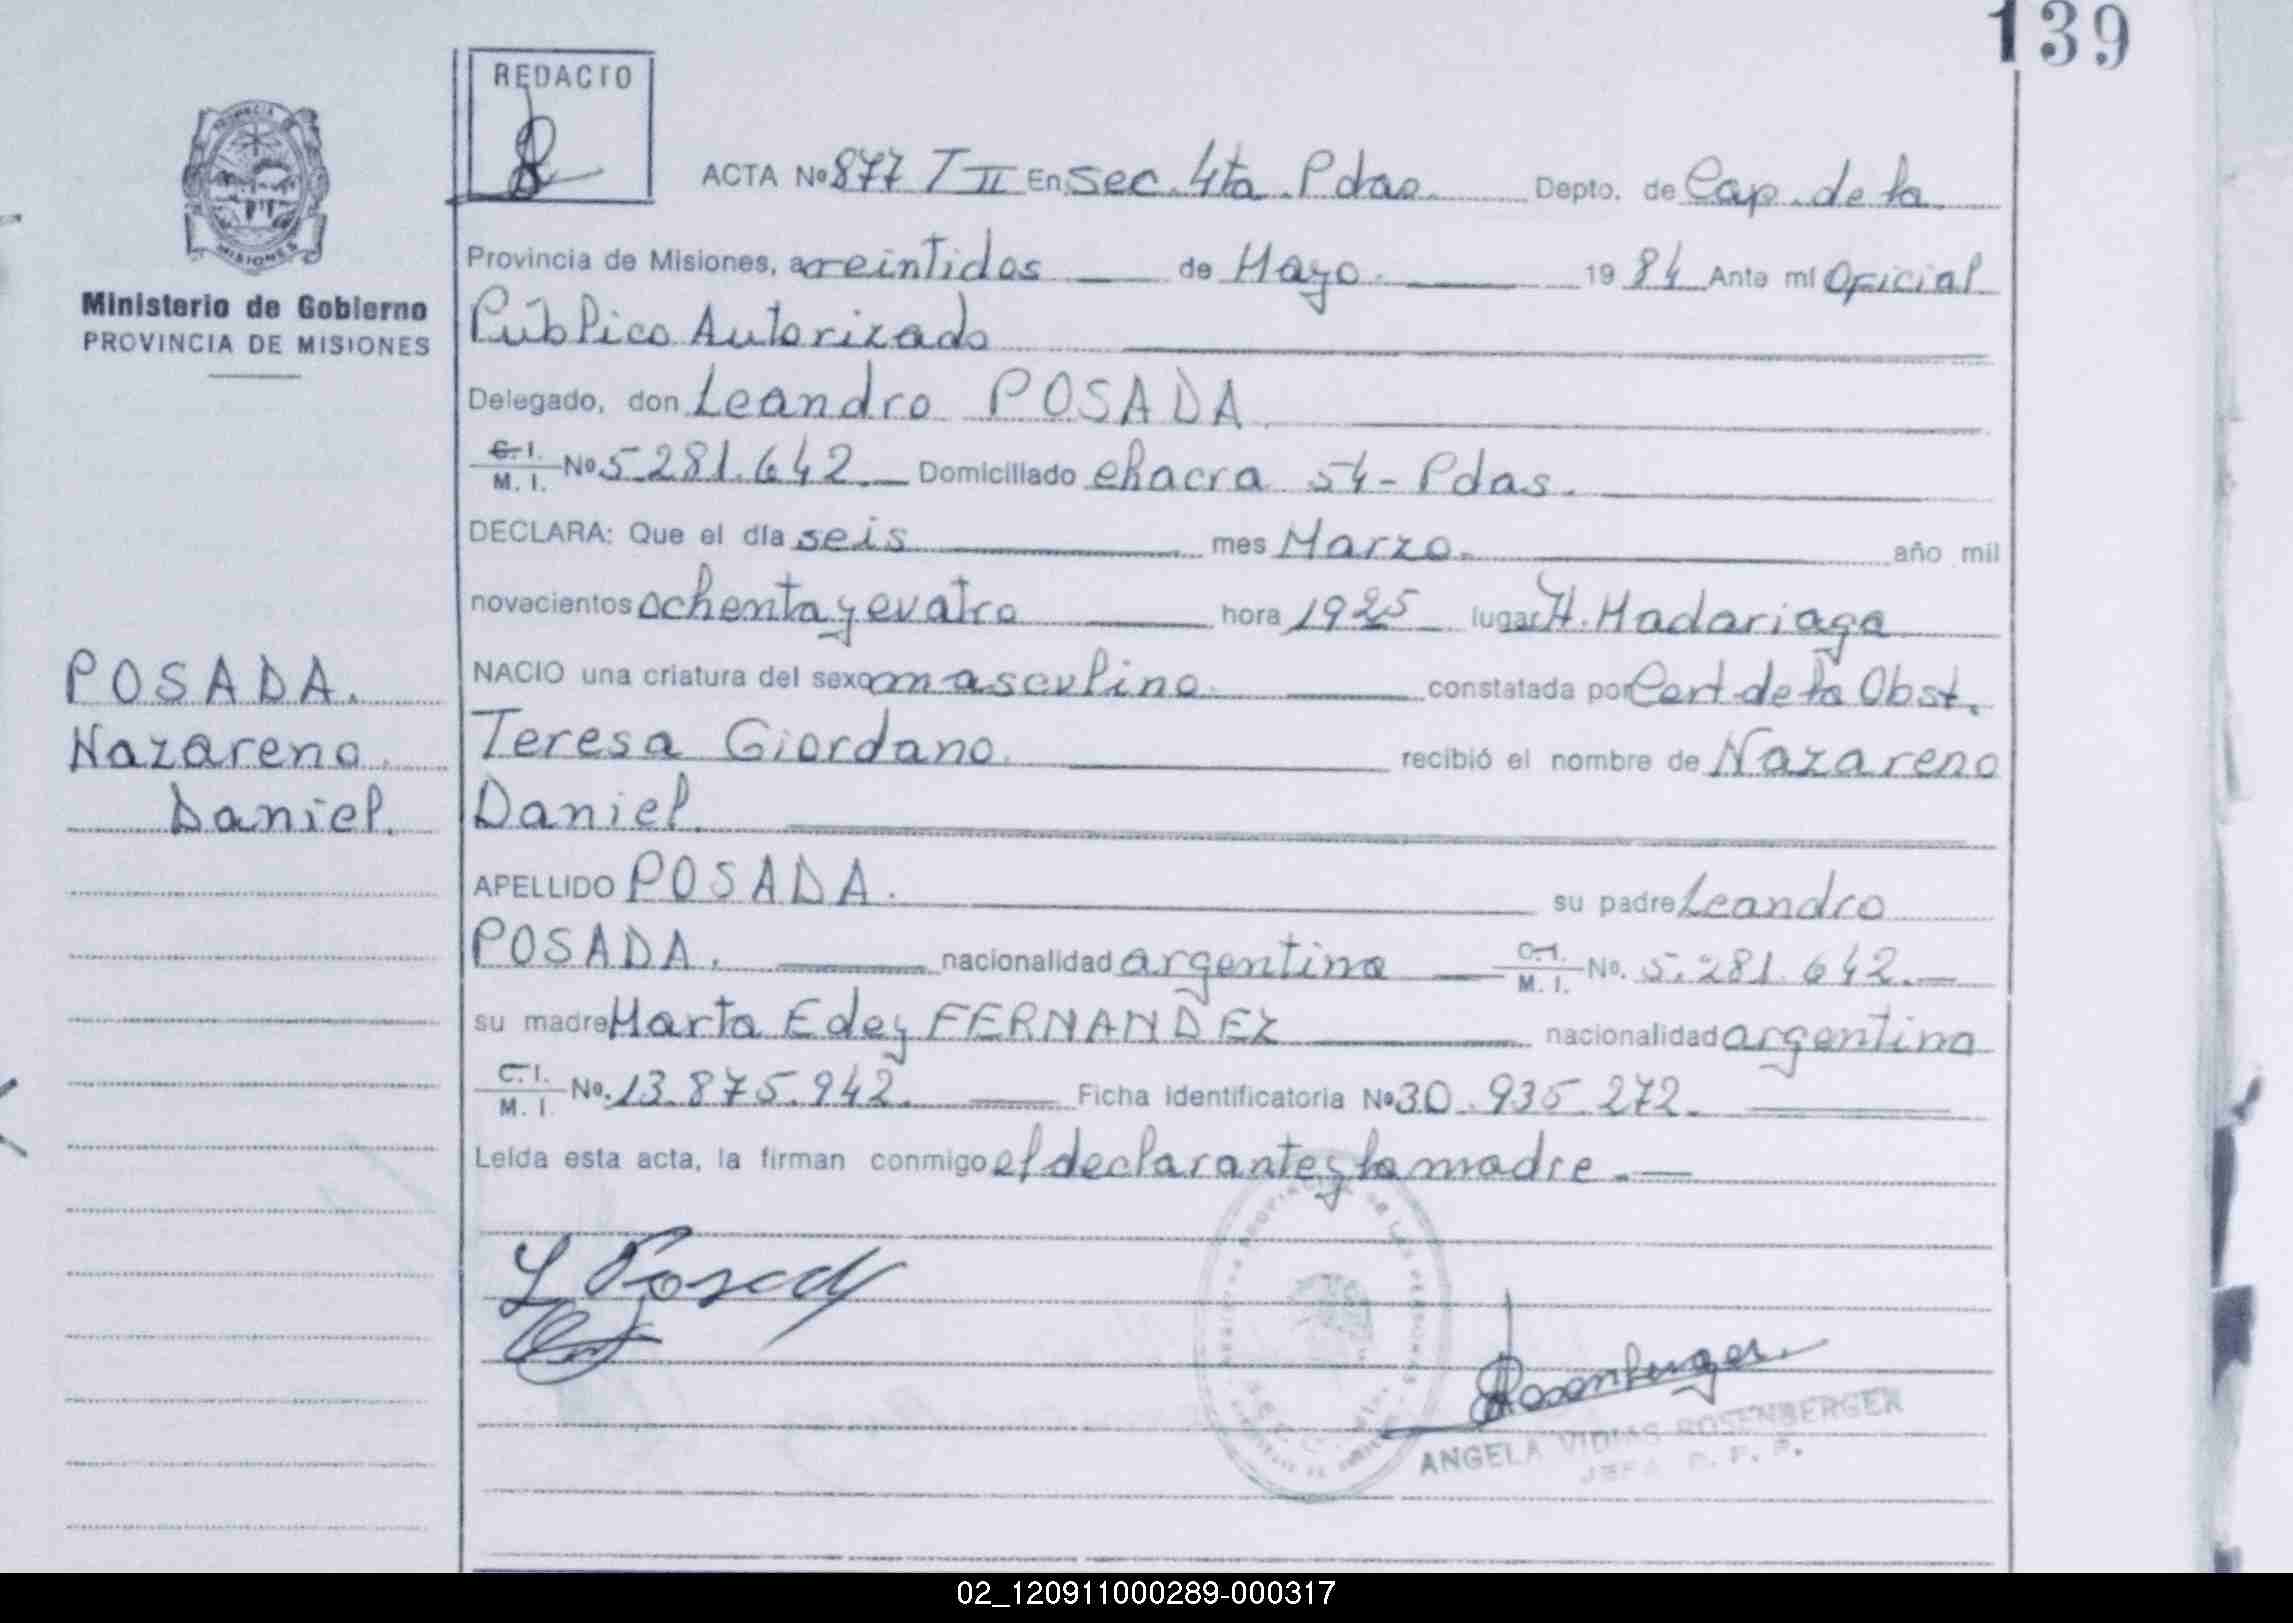 139
REDACTO
ACTA Nº 877 T II En Sec. 4ta. Pdas. Depto. de Cap. de la
Provincia de Misiones, a veintidos de Mayo. 19 84 Ante mí Oficial
Ministerio de Gobierno
PROVINCIA DE MISIONES
Público Autorizado
Delegado, don Leandro POSADA
C. I. M. I. Nº 5.281.642. Domiciliado chacra 54 - Pdas.
DECLARA: Que el día seis mes Marzo. año mil
novecientos ochenta y cuatro hora 1925 lugar H. Madariaga
NACIO una criatura del sexo masculino. constatada por Cert de la Obst.
Teresa Giordano. recibió el nombre de Nazareno
Daniel.
POSADA.
Nazareno
Daniel.
APELLIDO POSADA. su padre Leandro
POSADA. nacionalidad argentina C. I. M. I. Nº. 5.281.642.
su madre Marta Edey FERNANDEZ nacionalidad argentina
C. I. M. I. Nº. 13.875.942. Ficha identificatoria Nº 30.935.272.
Leída esta acta, la firman conmigo el declarante y la madre.
L Posada
Rosenberger.
ANGELA ROSENBERGER
JEFA
PROVINCIA DE MISIONES
02_120911000289-000317